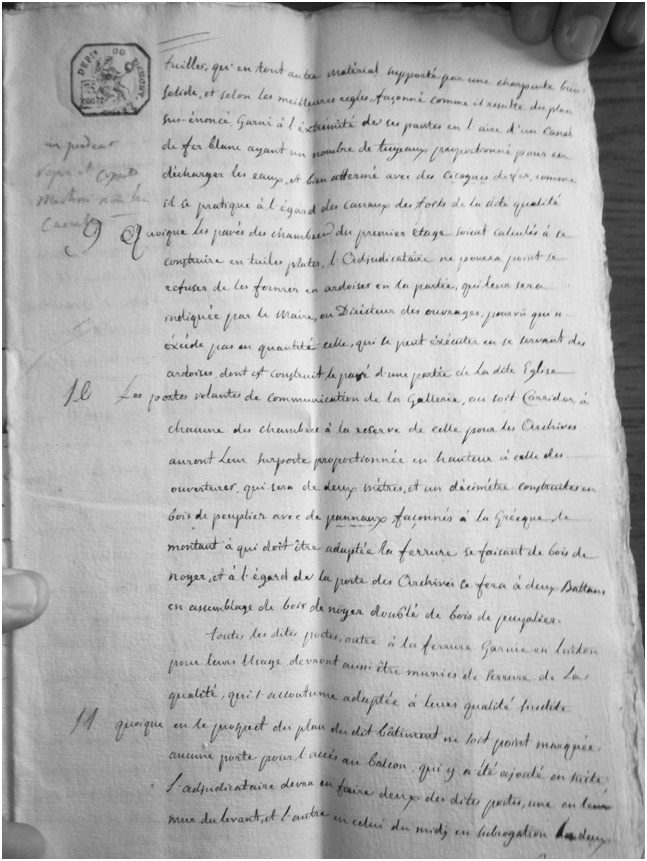 DEPt DU
tuilles, qui en tout autre matérial supporté par une charpente bien
solide, et selon les meilleures regles façonné comme il resulte du plan
sus-énoncé Garni à l'éxtrémité de ses pantes en l'aire d'un Canal
de fer blanc ayant un nombre de tuyeaux proportionné pour en
décharger les eaux, et bien affermé avec des Cicognes de fer, comme
il se pratique à l'égard des canaux des toits de la dite qualité
9 Quoique les pavés des chambres du premier étage soient calculés à se
construire en tuiles plates, l'Adjudicataire ne pourra point se
refuser de les former en ardoises en la partie, qui leur sera
indiquée par le Maire, ou Directeur des ouvrages, pourvû qui n'
éxcéde pas en quantité celle, qui se peut éxécuter en se servant des
ardoises, dont est construit le pavé d'une partie de la dite Eglise
10 Les portes volantes de communication de la Gallerie, ou soit Corridor à
chacune des chambres à la reserve de celle pour les Archives
auront leur surporte proportionnée en hauteur à celle des
ouvertures, qui sera de deux mètres, et un décimétre construites en
bois de peuplier avec de pannaux façonnés à la Grécque, le
montant à qui doit être adaptée la ferrure se faisant de bois de
noyer, et à l'égard de la porte des Archives se fera à deux Battans
en assemblage de bois de noyer doublé de bois de peuplier.
toutes les dites portes, outre à la ferrure Garnie en laiton
pour leurs Usage, devront aussi être munies de serrure de La
qualité, qui s'accoutume adaptée à leurs qualité susdite
11 quoique en le prospect du plan du dit bâtiment ne soit point marquée
aucune porte pour l'accés au balcon, qui y a été ajouté en suite
l'adjudicataire devra en faire deux des dites portes, une en leur
mur du levant, et l'autre en celui du midj en subrogation des deux